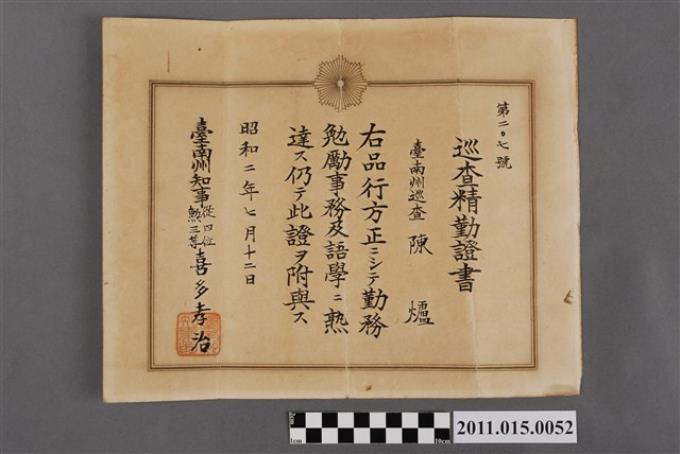 第二〇七號
巡查精勤證書
臺南州巡查 陳爐
右品行方正ニシテ勤務
勉勵事務及語學ニ熟
達ス仍テ此證ヲ附與ス
昭和二年七月十二日
臺南州知事從四位勲三等喜多孝治
1cm
10cm
2011.015.0052